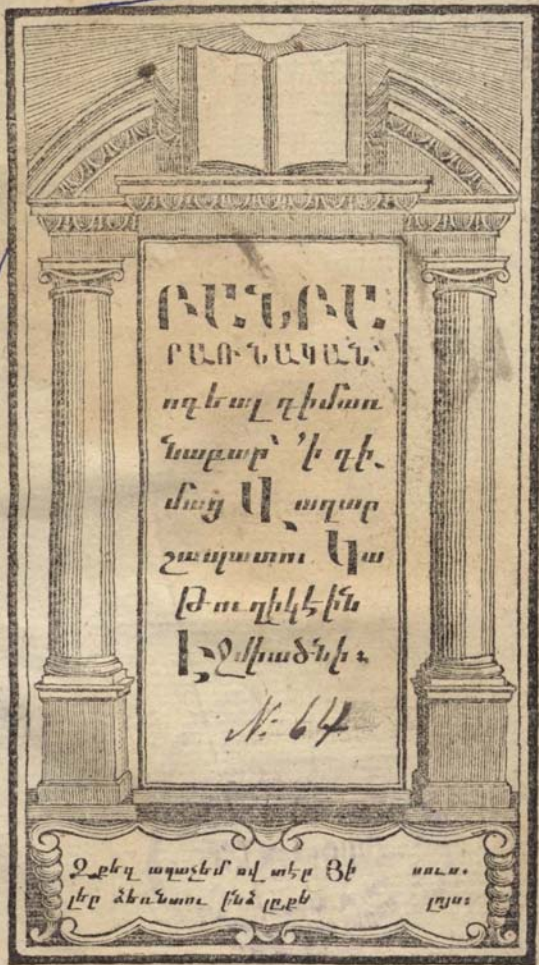 ԲԱՆԲԱ
ՐԱՌՆԱԿԱՆ՝
ողեալ դիմառ
նաբար՝ ՚ի դի֊
մաց Վաղար
շապատու Կա
թուղիկէին
Էջմիածնի։
№ 64
Զքեզ աղաչեմ ով տէր Յի սուս.
լեր ձեռնտու ինձ լըքե լոյս։